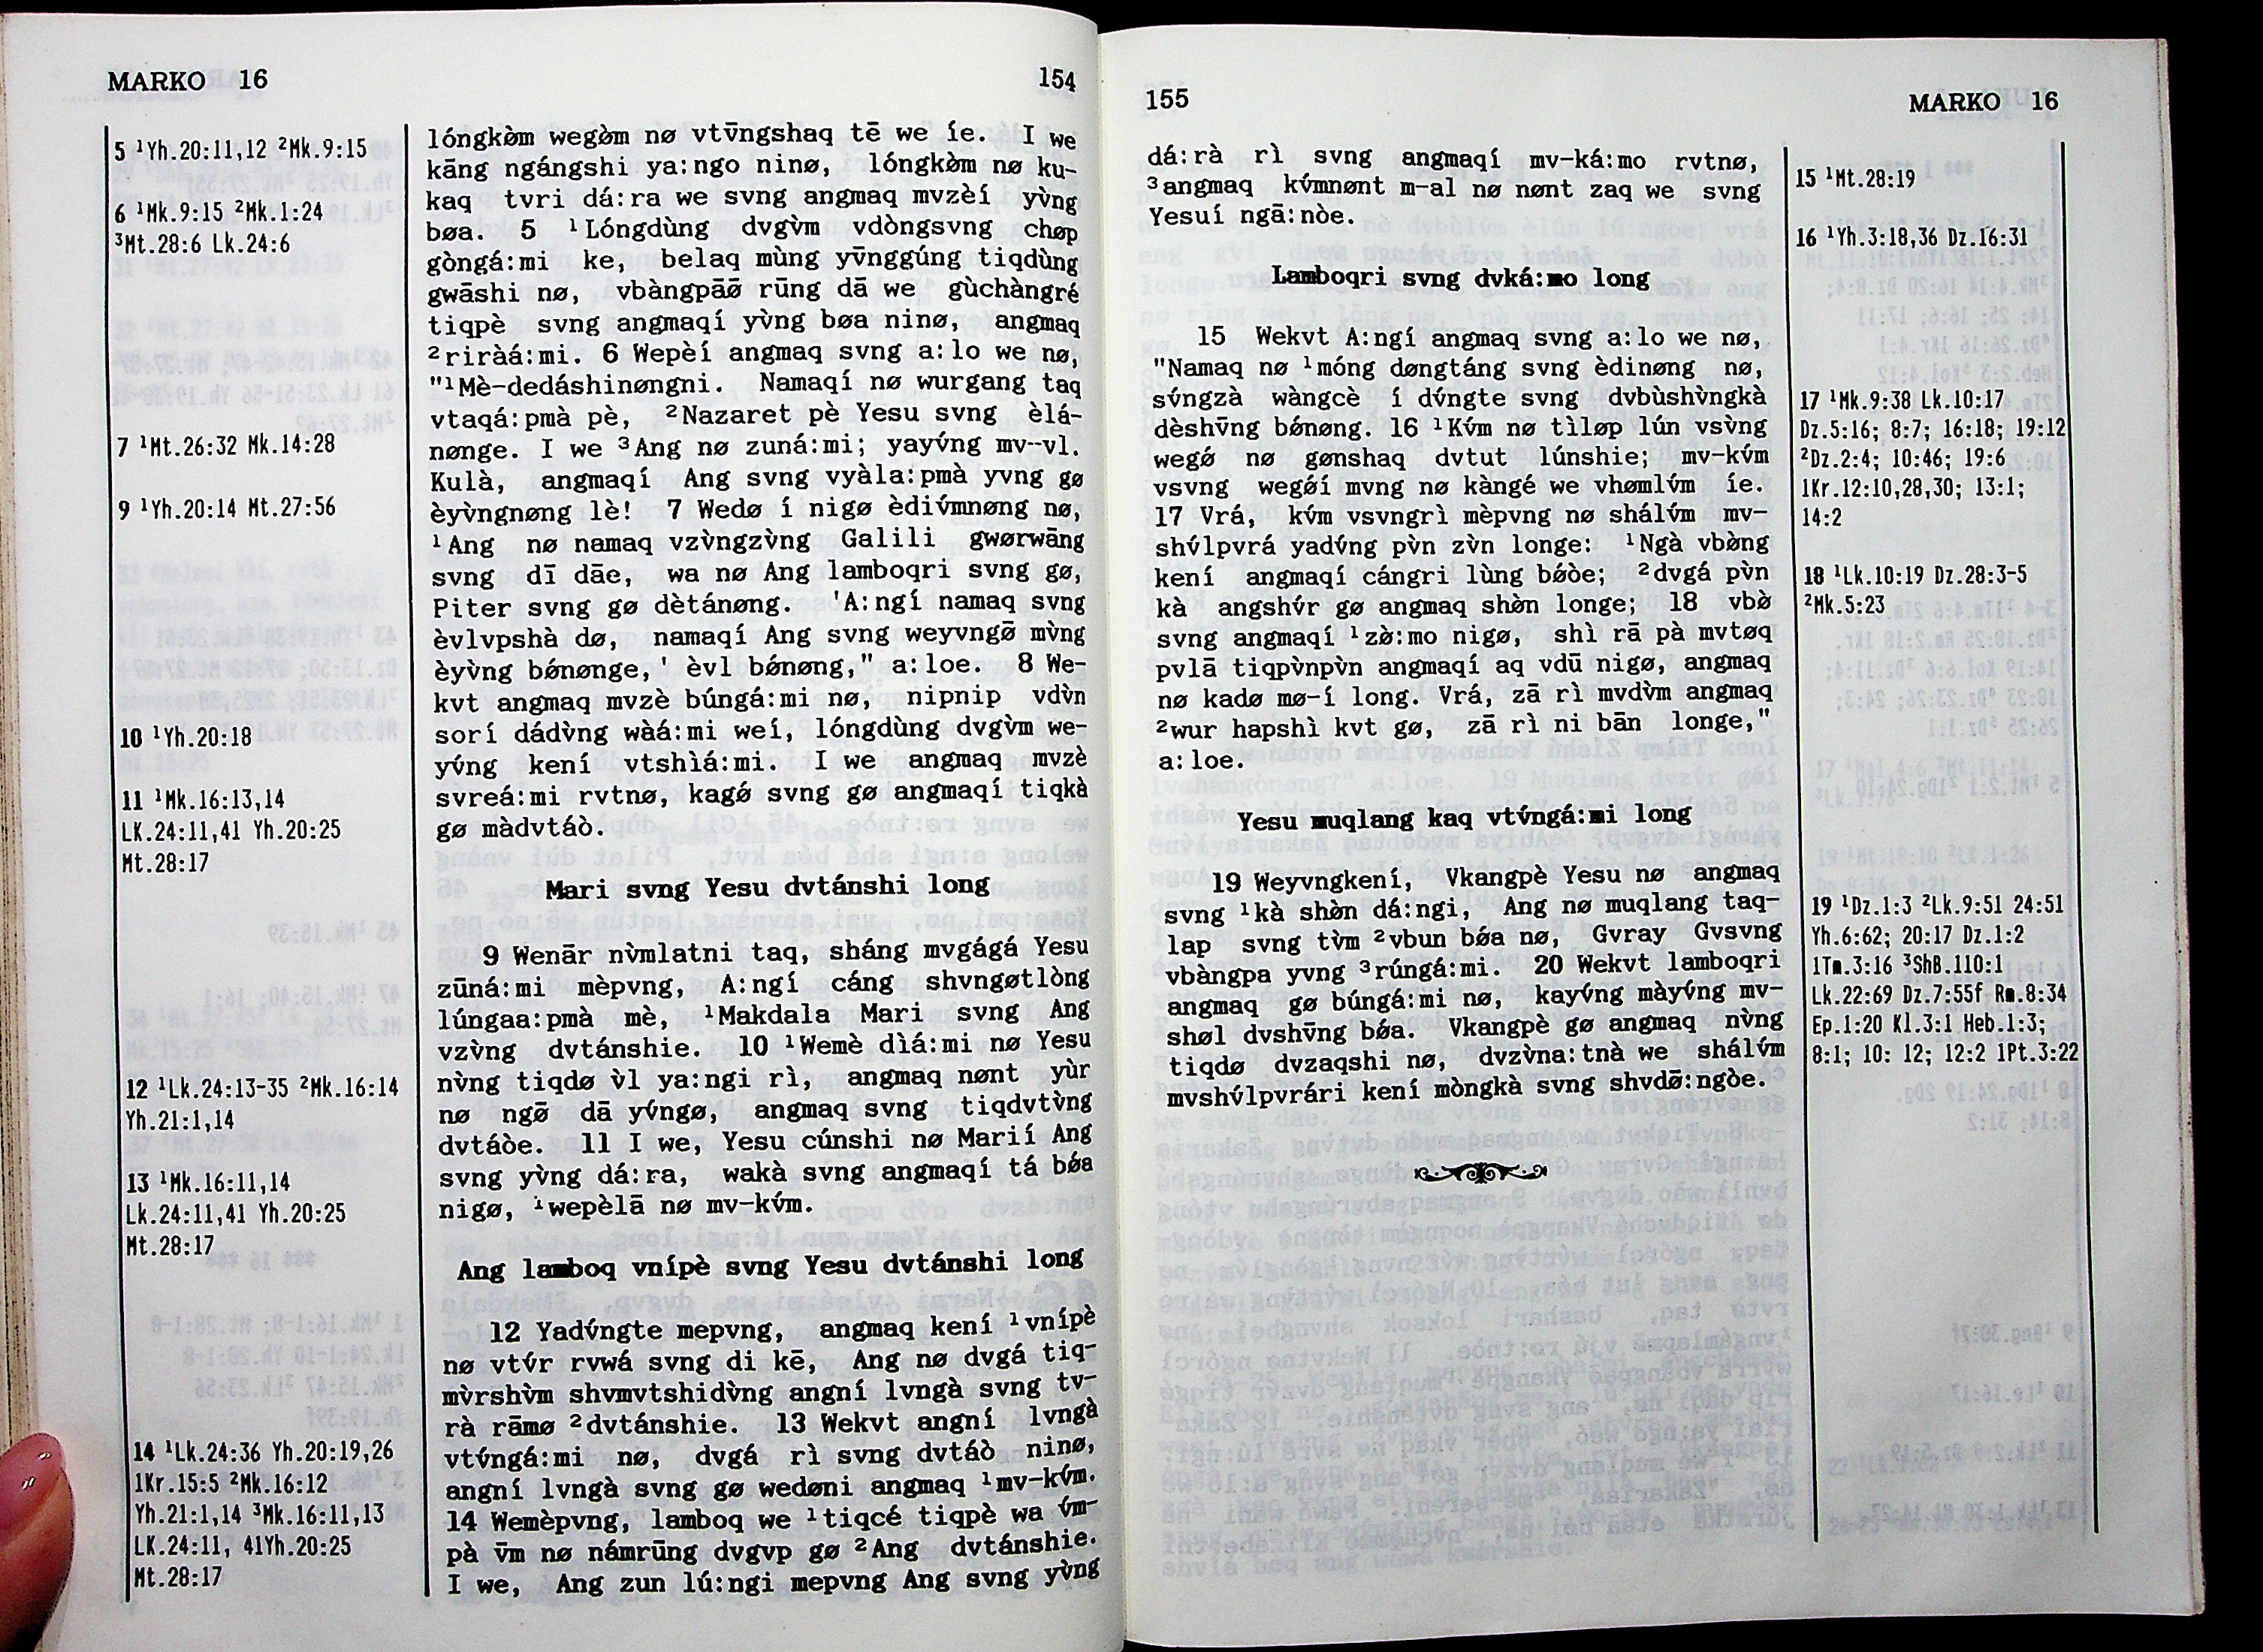 MARKO 16
154
5 ¹Yh.20:11,12 ²Mk.9:15
6 ¹Mk.9:15 ²Mk.1:24
³Mt.28:6 Lk.24:6
7 ¹Mt.26:32 Mk.14:28
9 ¹Yh.20:14 Mt.27:56
10 ¹Yh.20:18
11 ¹Mk.16:13,14
LK.24:11,41 Yh.20:25
Mt.28:17
12 ¹Lk.24:13-35 ²Mk.16:14
Yh.21:1,14
13 ¹Mk.16:11,14
Lk.24:11,41 Yh.20:25
Mt.28:17
14 ¹Lk.24:36 Yh.20:19,26
1Kr.15:5 ²Mk.16:12
Yh.21:1,14 ³Mk.16:11,13
LK.24:11, 41Yh.20:25
Mt.28:17
lóngkø̀m wegø̀m nø vtv̄ngshaq tē we íe. I we
kāng ngángshi ya:ngo ninø, lóngkø̀m nø ku-
kaq tvri dá:ra we svng angmaq mvzèí yv̀ng
bøa. 5 ¹Lóngdùng dvgv̀m vdòngsvng chøp
gòngá:mi ke, belaq mùng yv̄nggúng tiqdùng
gwāshi nø, vbàngpāø̄ rūng dā we gùchàngré
tiqpè svng angmaqí yv̀ng bøa ninø, angmaq
²riràá:mi. 6 Wepèí angmaq svng a:lo we nø,
"¹Mè-dedáshinøngni. Namaqí nø wurgang taq
vtaqá:pmà pè, ²Nazaret pè Yesu svng èlá-
nønge. I we ³Ang nø zuná:mi; yayv́ng mv--vl.
Kulà, angmaqí Ang svng vyàla:pmà yvng gø
èyv̀ngnøng lè! 7 Wedø í nigø èdiv́mnøng nø,
¹Ang nø namaq vzv̀ngzv̀ng Galili gwørwāng
svng dī dāe, wa nø Ang lamboqri svng gø,
Piter svng gø dètánøng. 'A:ngí namaq svng
èvlvpshà dø, namaqí Ang svng weyvngø̄ mv̀ng
èyv̀ng bǿnønge,' èvl bǿnøng," a:loe. 8 We-
kvt angmaq mvzè búngá:mi nø, nipnip vdv̀n
sorí dádv̀ng wàá:mi weí, lóngdùng dvgv̀m we-
yv́ng kení vtshìá:mi. I we angmaq mvzè
svreá:mi rvtnø, kagǿ svng gø angmaqí tiqkà
gø màdvtáò.
Mari svng Yesu dvtánshi long
9 Wenār nv̀mlatni taq, sháng mvgágá Yesu
zūná:mi mèpvng, A:ngí cáng shvngøtlòng
lúngaa:pmà mè, ¹Makdala Mari svng Ang
vzv̀ng dvtánshie. 10 ¹Wemè dìá:mi nø Yesu
nv̀ng tiqdø v̀l ya:ngi rì, angmaq nønt yùr
nø ngø̄ dā yv́ngø, angmaq svng tiqdvtv̀ng
dvtáòe. 11 I we, Yesu cúnshi nø Marií Ang
svng yv̀ng dá:ra, wakà svng angmaqí tá bǿa
nigø, ¹wepèlā nø mv-kv́m.
Ang lamboq vnípè svng Yesu dvtánshi long
12 Yadv́ngte mepvng, angmaq kení ¹vnípè
nø vtv́r rvwá svng di kē, Ang nø dvgá tiq-
mv̀rshv̀m shvmvtshidv̀ng angní lvngà svng tv-
rà rāmø ²dvtánshie. 13 Wekvt angní lvngà
vtv́ngá:mi nø, dvgá rì svng dvtáò ninø,
angní lvngà svng gø wedøni angmaq ¹mv-kv́m.
14 Wemèpvng, lamboq we ¹tiqcé tiqpè wa v́m-
pà v̄m nø námrūng dvgvp gø ²Ang dvtánshie.
I we, Ang zun lú:ngi mepvng Ang svng yv̀ng
155
MARKO 16
dá:rà rì svng angmaqí mv-ká:mo rvtnø,
³angmaq kv́mnønt m-al nø nønt zaq we svng
Yesuí ngā:nòe.
Lamboqri svng dvká:mo long
15 Wekvt A:ngí angmaq svng a:lo we nø,
"Namaq nø ¹móng døngtáng svng èdinøng nø,
sv́ngzà wàngcè í dv́ngte svng dvbùshv̀ngkà
dèshv̄ng bǿnøng. 16 ¹Kv́m nø tìløp lún vsv̀ng
wegǿ nø gønshaq dvtut lúnshie; mv-kv́m
vsvng wegǿí mvng nø kàngé we vhømlv́m íe.
17 Vrá, kv́m vsvngrì mèpvng nø shálv́m mv-
shv́lpvrá yadv́ng pv̀n zv̀n longe: ¹Ngà vbø̀ng
kení angmaqí cángri lùng bǿòe; ²dvgá pv̀n
kà angshv́r gø angmaq shø̀n longe; 18 vbø̀
svng angmaqí ¹zø̀:mo nigø, shì rā pà mvtøq
pvlā tiqpv̀npv̀n angmaqí aq vdū nigø, angmaq
nø kadø mø-í long. Vrá, zā rì mvdv̀m angmaq
²wur hapshì kvt gø, zā rì ni bān longe,"
a:loe.
Yesu muqlang kaq vtv́ngá:mi long
19 Weyvngkení, Vkangpè Yesu nø angmaq
svng ¹kà shø̀n dá:ngi, Ang nø muqlang taq-
lap svng tv̀m ²vbun bǿa nø, Gvray Gvsvng
vbàngpa yvng ³rúngá:mi. 20 Wekvt lamboqri
angmaq gø búngá:mi nø, kayv́ng màyv́ng mv-
shøl dvshv̄ng bǿa. Vkangpè gø angmaq nv̀ng
tiqdø dvzaqshi nø, dvzv̀na:tnà we shálv́m
mvshv́lpvrári kení mòngkà svng shvdø̄:ngòe.
15 ¹Mt.28:19
16 ¹Yh.3:18,36 Dz.16:31
17 ¹Mk.9:38 Lk.10:17
Dz.5:16; 8:7; 16:18; 19:12
²Dz.2:4; 10:46; 19:6
1Kr.12:10,28,30; 13:1;
14:2
18 ¹Lk.10:19 Dz.28:3-5
²Mk.5:23
19 ¹Dz.1:3 ²Lk.9:51 24:51
Yh.6:62; 20:17 Dz.1:2
1Tm.3:16 ³ShB.110:1
Lk.22:69 Dz.7:55f Rm.8:34
Ep.1:20 Kl.3:1 Heb.1:3;
8:1; 10: 12; 12:2 1Pt.3:22